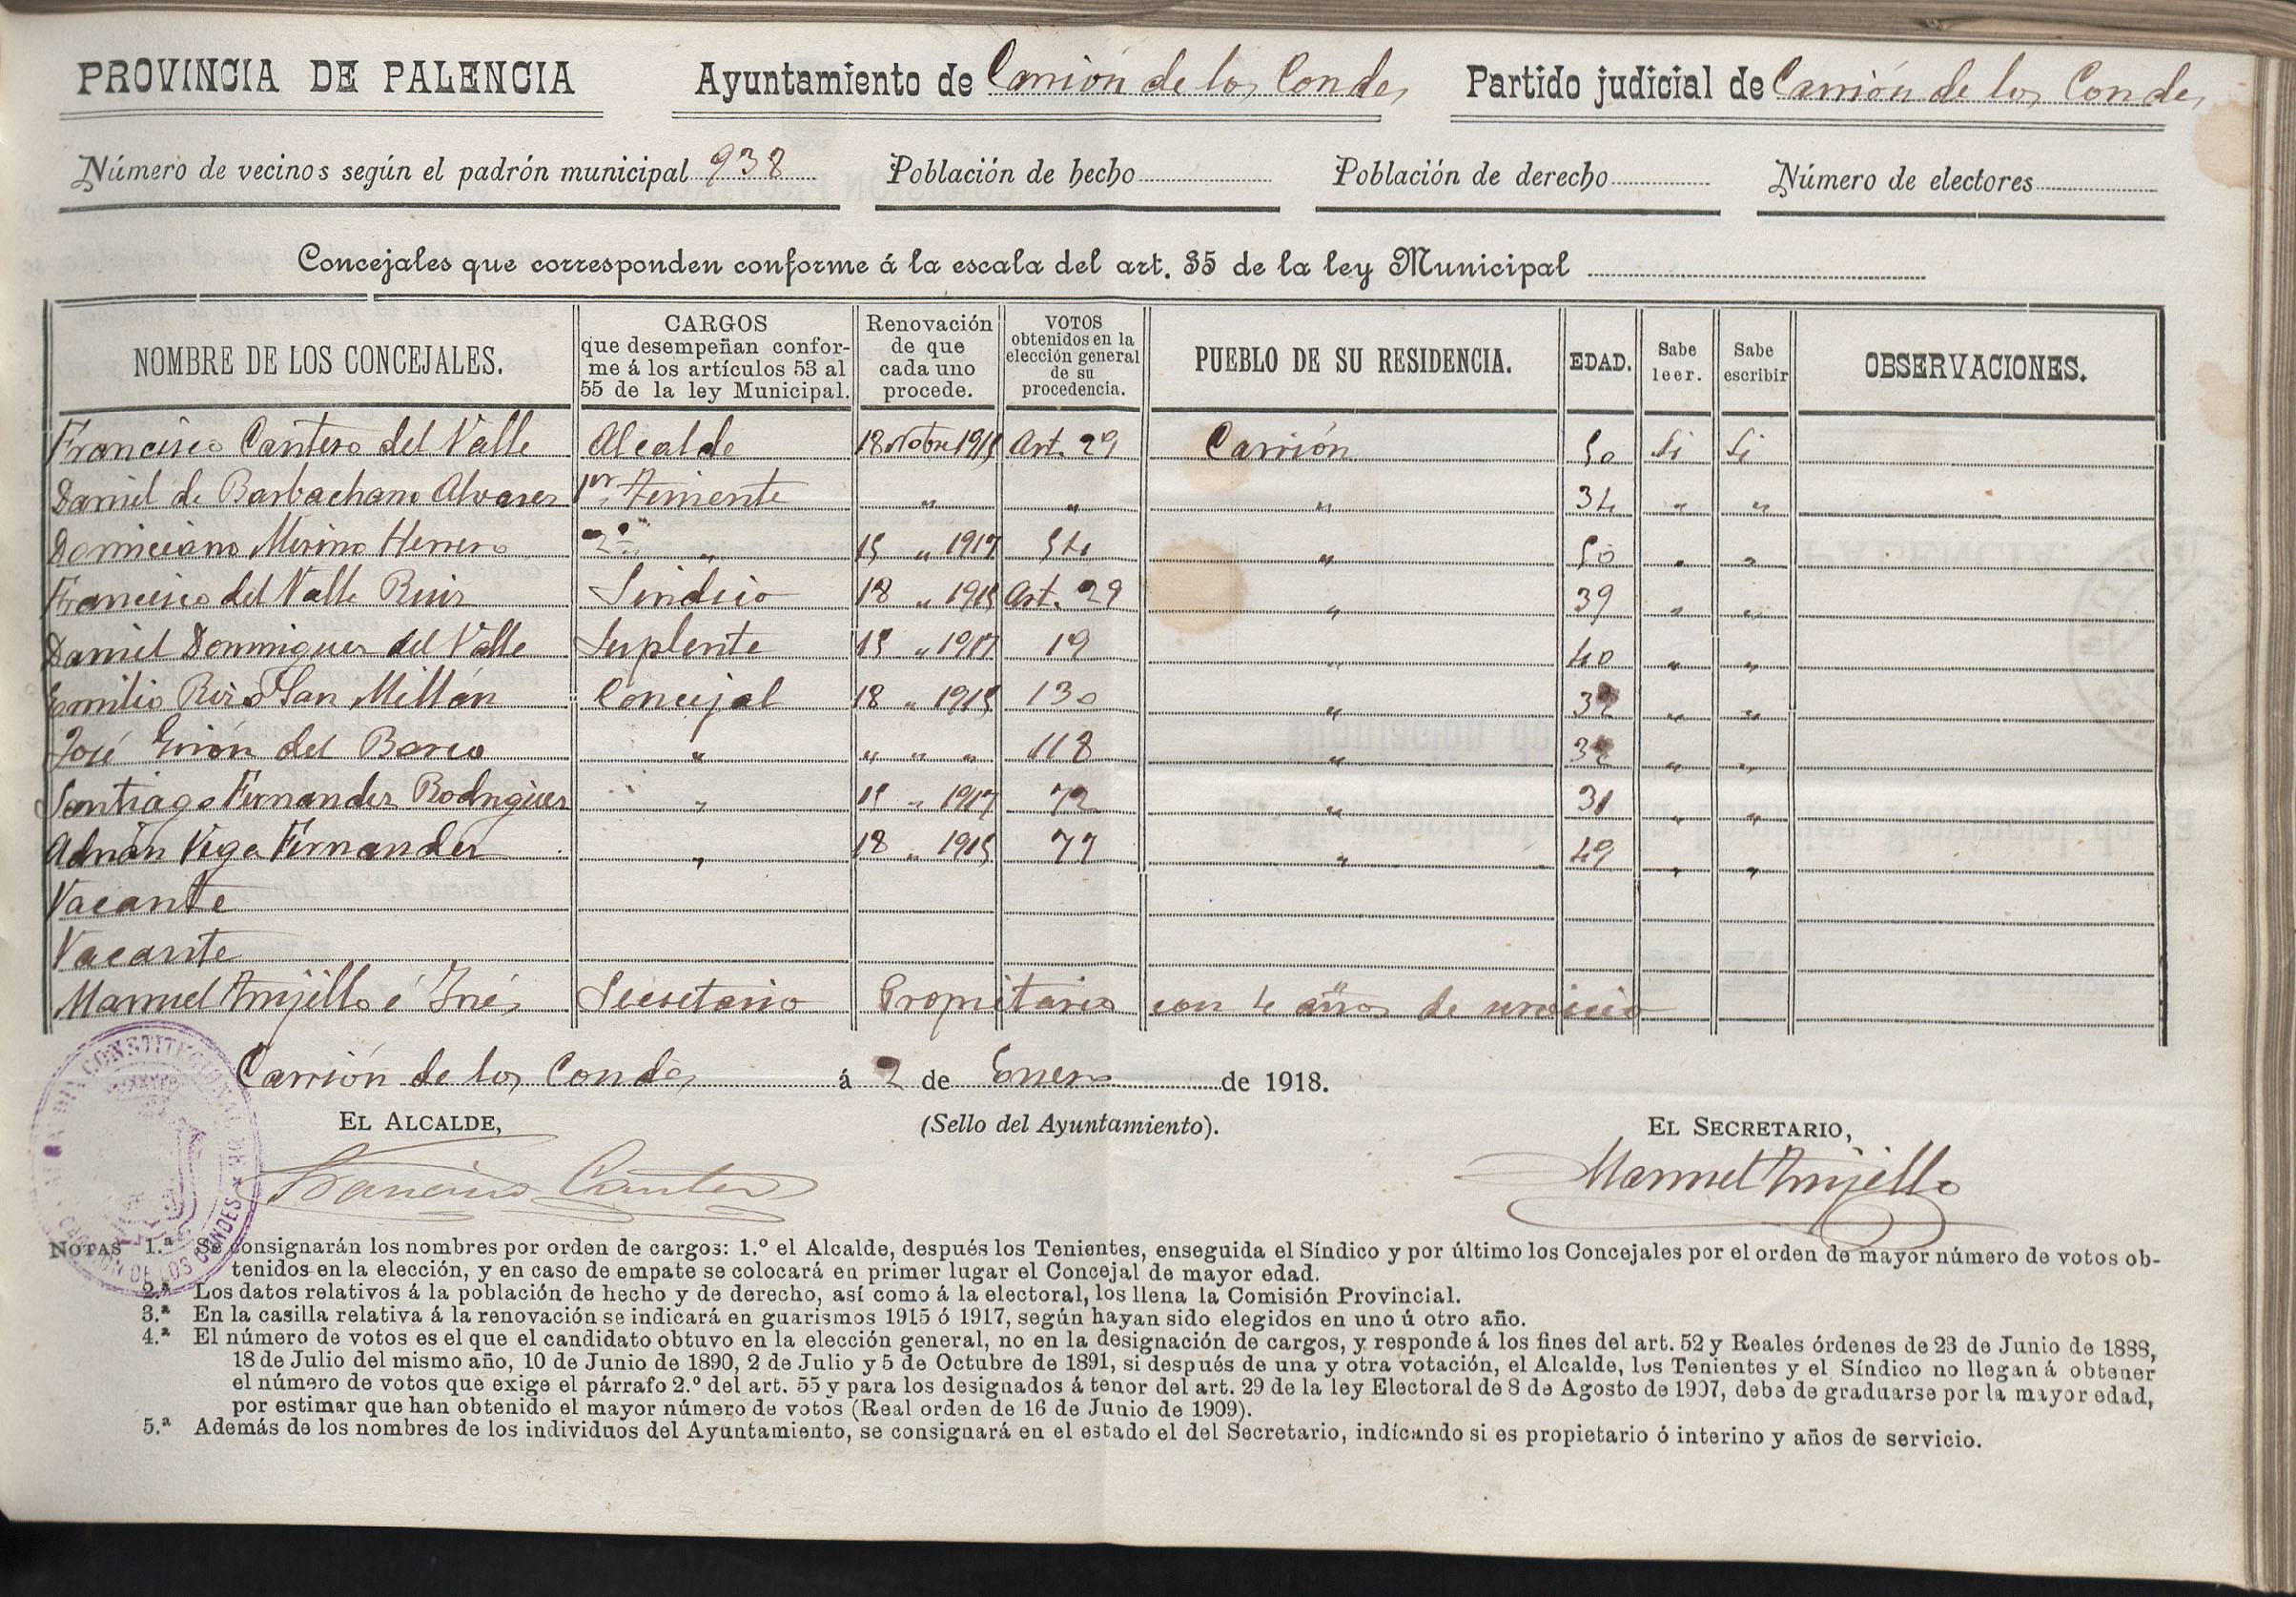 PROVINCIA DE PALENCIA Ayuntamiento de Carrión de los Condes Partido judicial de Carrión de los Condes
Número de vecinos según el padrón municipal 938 Población de hecho Población de derecho Número de electores
Concejales que corresponden conforme á la escala del art. 35 de la ley Municipal
NOMBRE DE LOS CONCEJALES. CARGOS que desempeñan confor-me á los artículos 53 al 55 de la ley Municipal. Renovación de que cada uno procede. VOTOS obtenidos en la elección general de su procedencia. PUEBLO DE SU RESIDENCIA. EDAD. Sabe leer. Sabe escribir OBSERVACIONES.
Francisco Cantero del Valle Alcalde 18 Nobre 1915 Art. 29 Carrión 50 Si Si
Daniel de Barbachano Alvarez 1er Teniente " " " 34 " "
Domiciano Merino Herrero 2º " 15 " 1917 54 " 50 " "
Francisco del Valle Ruiz Sindico 18 " 1915 Art. 29 " 39 " "
Daniel Dominguez del Valle Suplente 15 " 1917 19 " 40 " "
Emilio San Millán Concejal 18 " 1915 130 " " "
José Girón del Barco " " " " 118 " " "
Santiago Fernandez Rodriguez " 15 " 1917 72 " 31 " "
Adrián Vega Fernandez " 18 " 1915 77 " 49 " "
Vacante
Vacante
Manuel Trujillo é Inés Secretario Propietario con 4 años de servicio
Carrión de los Condes á 2 de Enero de 1918.
EL ALCALDE, (Sello del Ayuntamiento). EL SECRETARIO,
Francisco Cantero Manuel Trujillo
CONSTITUCIONAL DE CARRION DE LOS CONDES
NOTAS 1.ª Se consignarán los nombres por orden de cargos: 1.º el Alcalde, después los Tenientes, enseguida el Síndico y por último los Concejales por el orden de mayor número de votos ob-
tenidos en la elección, y en caso de empate se colocará en primer lugar el Concejal de mayor edad.
2.ª Los datos relativos á la población de hecho y de derecho, así como á la electoral, los llena la Comisión Provincial.
3.ª En la casilla relativa á la renovación se indicará en guarismos 1915 ó 1917, según hayan sido elegidos en uno ú otro año.
4.ª El número de votos es el que el candidato obtuvo en la elección general, no en la designación de cargos, y responde á los fines del art. 52 y Reales órdenes de 23 de Junio de 1888,
18 de Julio del mismo año, 10 de Junio de 1890, 2 de Julio y 5 de Octubre de 1891, si después de una y otra votación, el Alcalde, los Tenientes y el Síndico no llegan á obtener
el número de votos que exige el párrafo 2.º del art. 55 y para los designados á tenor del art. 29 de la ley Electoral de 8 de Agosto de 1907, debe de graduarse por la mayor edad,
por estimar que han obtenido el mayor número de votos (Real orden de 16 de Junio de 1909).
5.ª Además de los nombres de los individuos del Ayuntamiento, se consignará en el estado el del Secretario, indicando si es propietario ó interino y años de servicio.